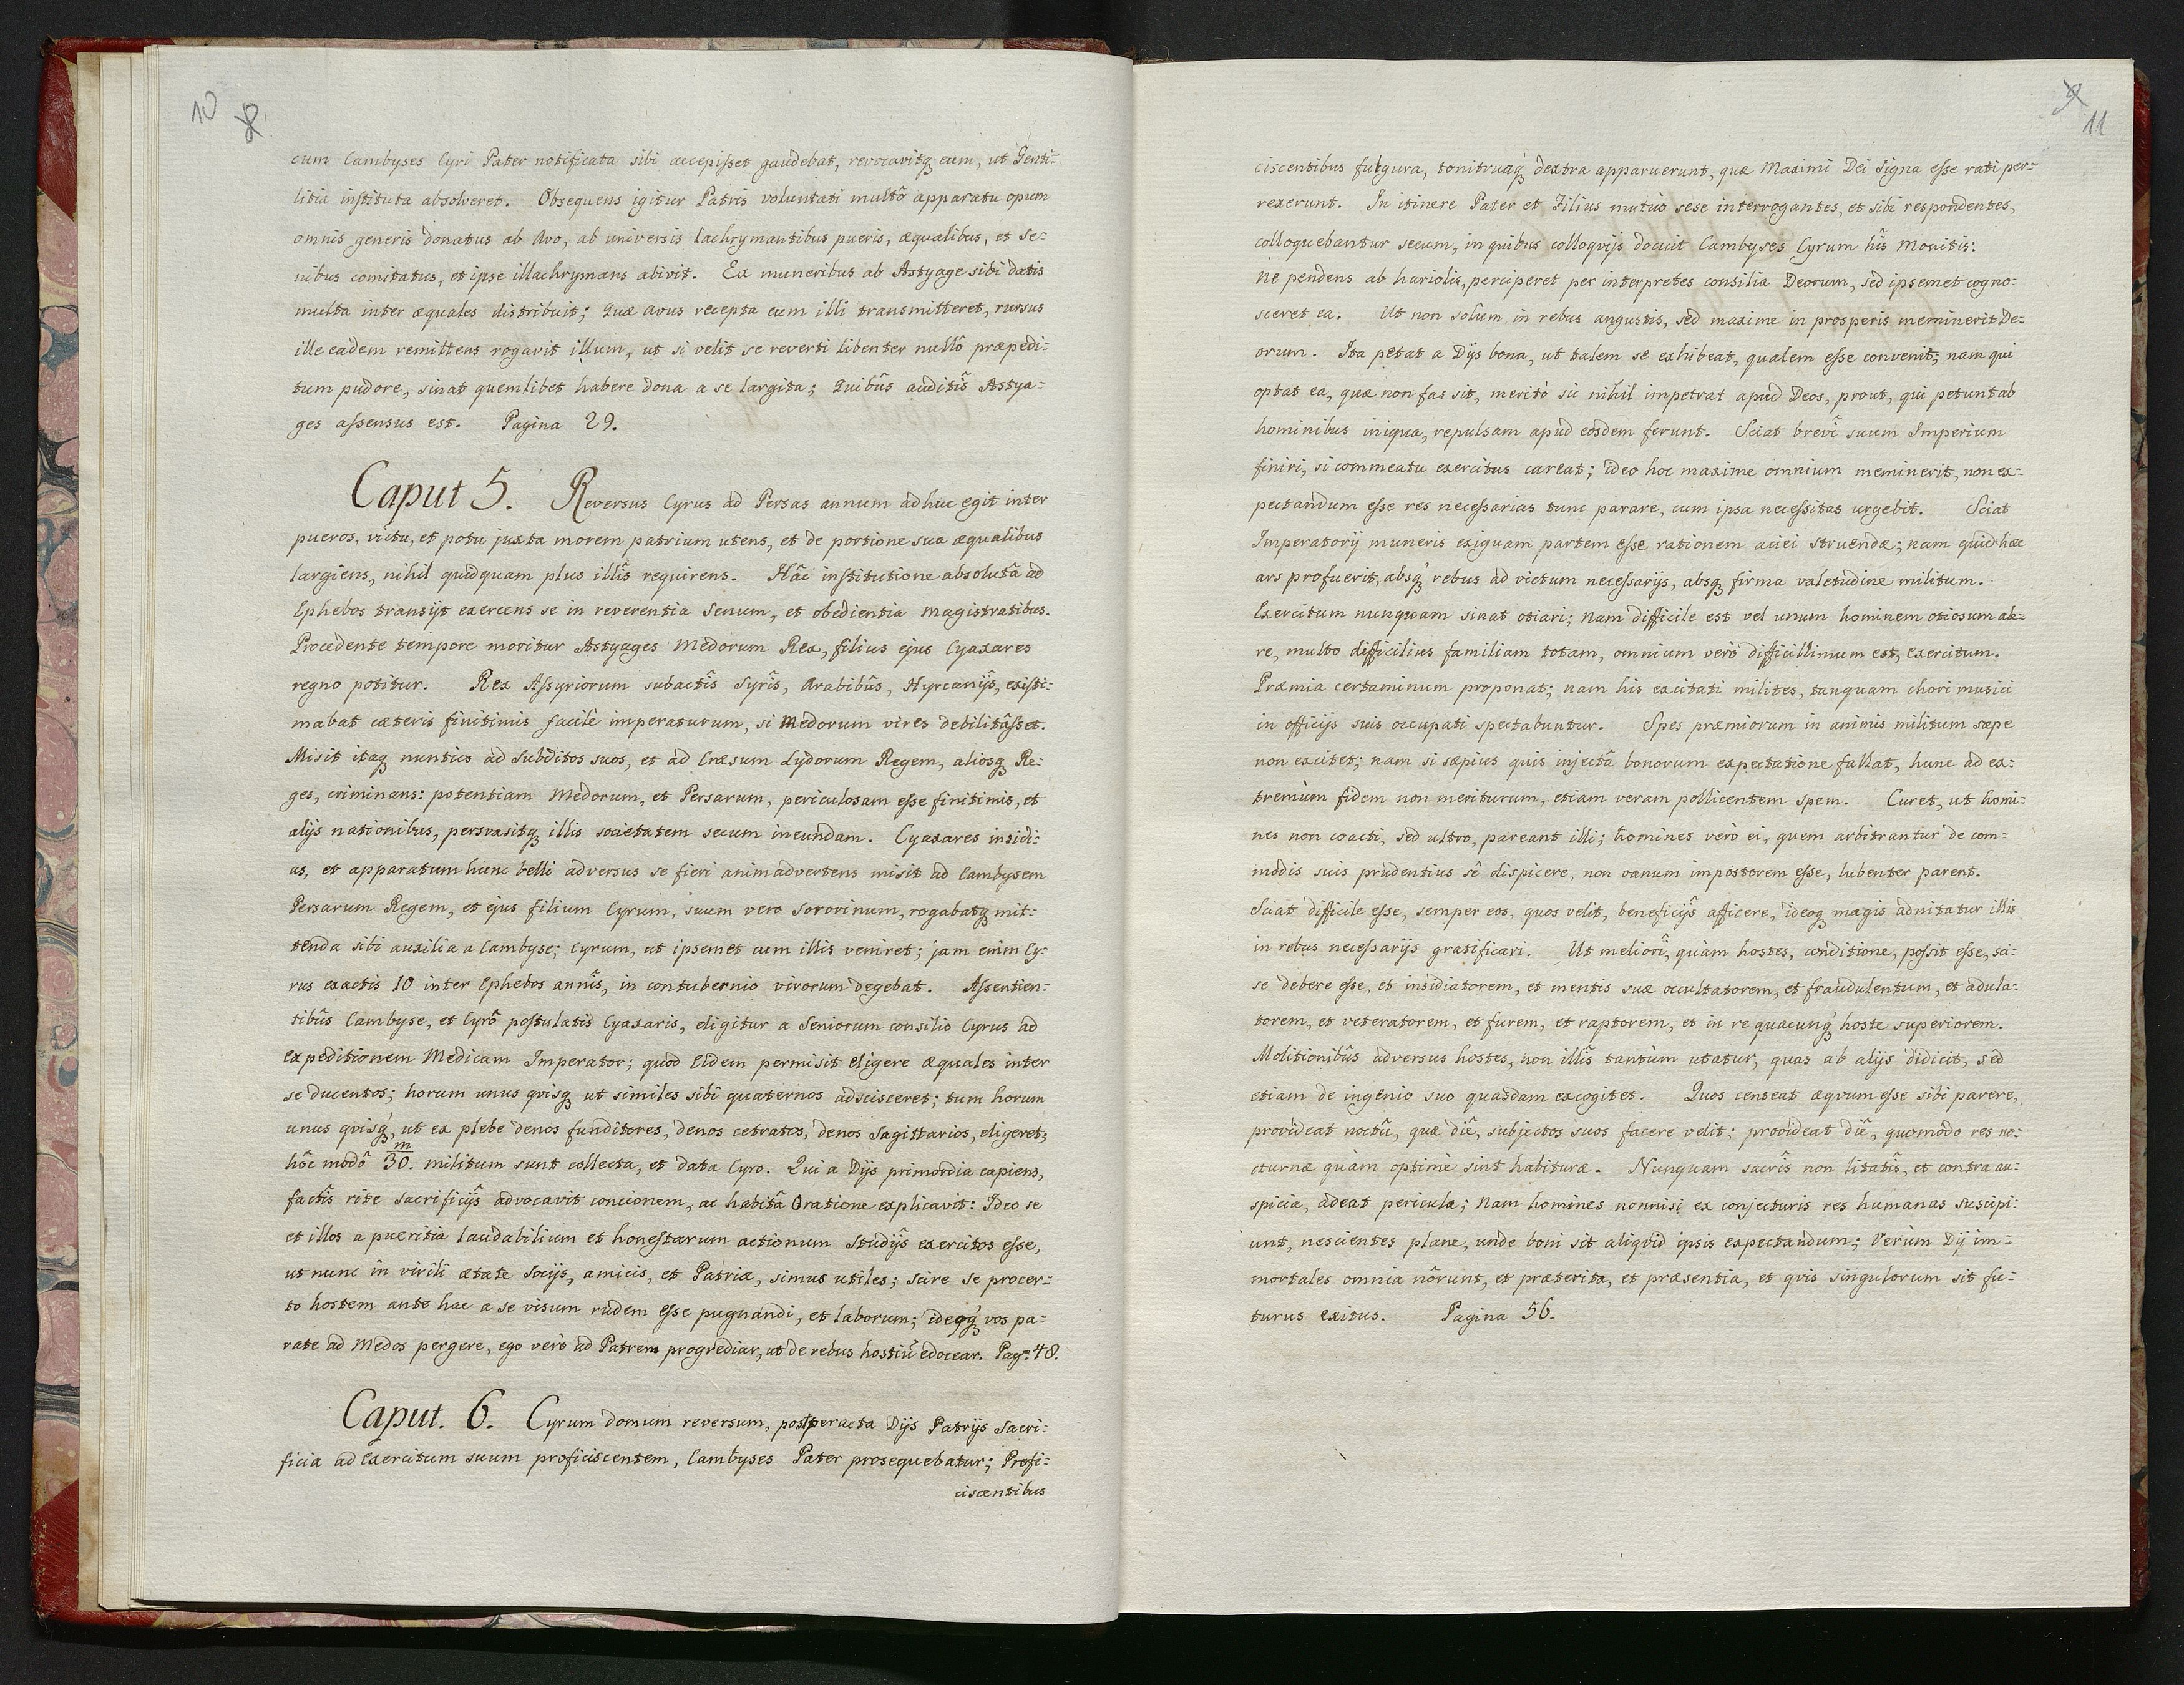 10 8
cum Cambyses Cyri Pater notificata sibi accepisset gaudebat, revocavitq; eum, ut Genti-
litia instituta absolveret. Obsequens igitur Patris voluntati multô apparatu opum
omnis generis donatus ab Avo, ab universis lachrymantibus pueris, æqualibus, et Se-
nibus comitatus, et ipse illachrymans abivit. Ex muneribus ab Astyage sibi datis
multa inter æquales distribuit; Quæ Avus recepta cum illi transmitteret, rursus
ille eadem remittens rogavit illum, ut si velit se reverti libenter nullô præpedi-
tum pudore, sinat quemlibet habere dona a se largita; Quibûs auditîs Astya-
ges assensus est. Pagina 29.
Caput 5. Reversus Cyrus ad Persas annum adhuc egit inter
pueros, victu, et potu juxta morem patrium utens, et de portione sua æqualibus
largiens, nihil quidquam plus illîs requirens. Hâc institutione absolutâ ad
Ephebos transijt exercens se in reverentia Senum, et obedientia magistratibus.
Procedente tempore moritur Astyages Medorum Rex, filius ejus Cyaxares
regno potitur. Rex Assyriorum subactîs Syrîs, Arabibûs, Hyrcanijs, existi-
mabat cæteris finitimis facilè imperaturum, si Medorum vires debilitâsset.
Misit itaq; nuntios ad Subditos suos, et ad Cræsum Lydorum Regem, aliosq; Re-
ges, criminans: potentiam Medorum, et Persarum, periculosam esse finitimis, et
alijs nationibus, persvasitq; illis societatem secum ineundam. Cyaxares insidi-
as, et apparatum hunc belli adversus se fieri animadvertens misit ad Cambysem
Persarum Regem, et ejus filium Cyrum, suum vero Sororinum, rogabatq; mit-
tenda sibi auxilia a Cambyse; Cyrum, ut ipsemet cum illis veniret; jam enim Cy-
rus exactis 10 inter Ephebos annîs, in contubernio virorum degebat. Assentien-
tibûs Cambyse, et Cyrô postulatis Cyaxaris, eligitur a Seniorum consilio Cyrus ad
expeditionem Medicam Imperator; quod Eidem permisit eligere æquales inter
se ducentos; horum unus qvisq; ut similes sibi quaternos adscisceret; tum horum
unus qvisq; ut ex plebe denos funditores, denos cetratos, denos Sagittarios, eligeret;
m
hôc modô 30. militum sunt collecta, et data Cyro. Qui a Dijs primordia capiens,
factîs rite sacrificijs advocavit concionem, ac habitâ Oratione explicavit: Ideo se
et illos a pueritia laudabilium et honestarum actionum Studijs exercitos esse,
ut nunc in virili ætate Socijs, amicis, et Patriæ, simus utiles; scire se procer-
to hostem ante hac a se visum rudem esse pugnandi, et laborum; ideoq; vos pa-
rate ad Medos pergere, ego verò ad Patrem progrediar, ut de rebus hostiũ edocear. Pag: 48.
Caput. 6. Cyrum domum reversum, postperacta Dijs Patrijs Sacri-
ficia ad Exercitum suum proficiscentem, Cambyses Pater prosequebatur; Profi-
ciscentibus
9 11
ciscentibus fulgura, tonitruaq; dextra apparuerunt, quæ Maximi Dei Signa esse rati per-
rexerunt. In itinere Pater et Filius mutùò sese interrogantes, et sibi respondentes,
colloquebantur secum, in quibus colloqvijs docuit Cambyses Cyrum hîs Monitis:
Ne pendens ab hariolis, perciperet per interpretes consilia Deorum, sed ipsemet cogno-
sceret ea. Ut non solùm in rebus angustis, sed maxime in prosperis meminerit De-
orum. Ita petat a Dijs bona, ut talem se exhibeat, qualem esse convenit; nam qui
optat ea, quæ non fas sit, meritò sic nihil impetrat apud Deos, prout, qui petunt ab
hominibus iniqua, repulsam apud eosdem ferunt. Sciat brevî suum Imperium
finiri, si commeatu exercitus careat; ideo hoc maxime omnium meminerit, non ex-
pectandum esse res necessarias tunc parare, cum ipsa necessitas urgebit. Sciat
Imperatorij muneris exiguam partem esse rationem aciei struendæ; nam quid hæc
ars profuerit, absq; rebus ad victum necessarijs, absq; firma valetudine militum.
Exercitum nunquam sinat otiari; nam difficile est vel unum hominem otiosum ale-
re, multo difficilius familiam totam, omnium verò difficillimum est, exercitum.
Præmia certaminum proponat; nam his excitati milites, tanquam chori musici
in officijs suis occupati spectabuntur. Spes præmiorum in animis militum sæpe
non excitet; nam si sæpius quis injectâ bonorum expectatione fallat, hunc ad ex-
tremùm fidem non meriturum, etiam veram pollicentem spem. Curet, ut homi-
nes non coacti, sed ultro, pareant illi; homines verò ei, quem arbitrantur de com-
modis suis prudentius sê dispicere, non vanum impostorem esse, lubenter parent.
Sciat difficile esse, semper eos, quos velit, beneficijs afficere, ideoq; magis adnitatur illis
in rebus necessarijs gratificari. Ut meliorî, quàm hostes, conditione, possit esse, sci-
se debere esse, et insidiatorem, et mentis suæ occultatorem, et fraudulentum, et adula-
torem, et veteratorem, et furem, et raptorem, et in re quacunq; hoste superiorem.
Molitionibûs adversus hostes, non illîs tantùm utatur, quas ab alijs didicit, sed
etiam de ingenio suo quasdam excogitet. Quos censeat æqvum esse sibi parere,
provideat noctû, quæ diê, subjectos suos facere velit; provideat diê, quomodo res no-
cturnæ quàm optimè sint habituræ. Nunquam sacrîs non litatîs, et contra au-
spicia, adeat pericula; Nam homines nonnisi ex conjecturis res humanas suscipi-
unt, nescientes plane, unde boni sit aliqvid ipsis expectandum; Verùm Dij im-
mortales omnia nôrunt, et præterita, et præsentia, et qvis singulorum sit fu-
turus exitus. Pagina 56.